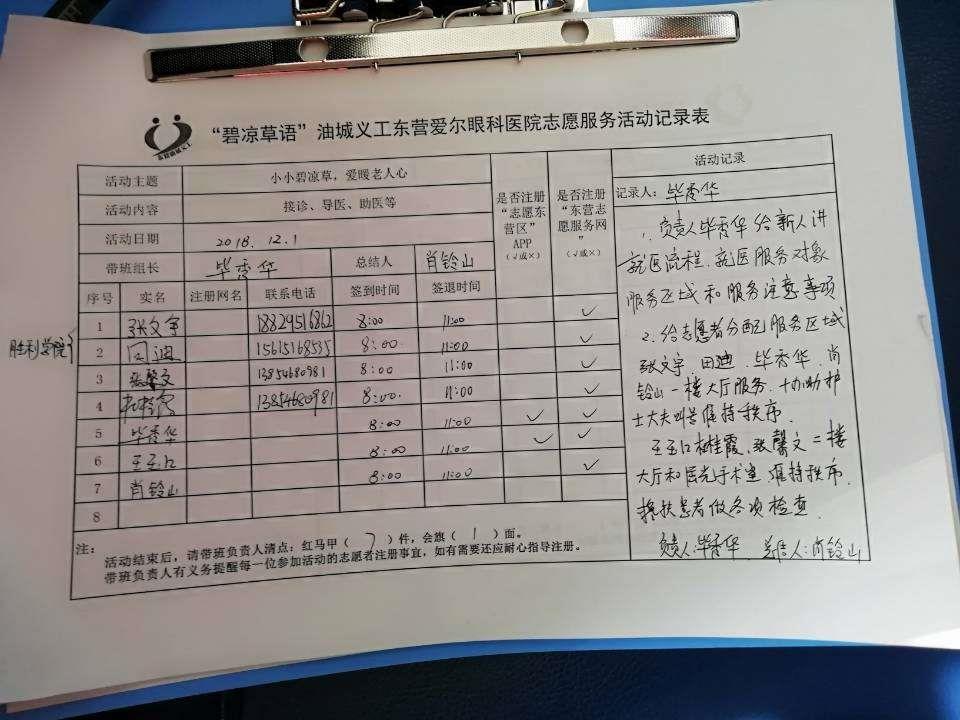 “碧凉草语”油城义工东营爱尔眼科医院志愿服务活动记录表
活动主题 小小碧凉草，爱暖老人心 是否注册“志愿东营区”APP（√或×） 是否注册“东营志愿服务网”（√或×） 活动记录
活动内容 接诊、导医、助医等
活动日期 2018.12.1
带班组长 毕秀华 总结人 肖铃山
序号 实名 注册网名 联系电话 签到时间 签退时间
胜利学院
1 张文宇 18829516862 8:00 11:00 √
2 田迪 15615168535 8:00 11:00 √
3 张馨文 13854680981 8:00 11:00 √
4 杜桂霞 13854680981 8:00 11:00 √
5 毕秀华 8:00 11:00 √ √
6 王玉江 8:00 11:00 √ √
7 肖铃山 8:00 11:00 √
8
记录人：毕秀华
1、负责人毕秀华给新人讲
就医流程、就医服务对象
服务区域和服务注意事项
2、给志愿者分配服务区域
张文宇、田迪、毕秀华、肖
铃山一楼大厅服务、协助护
士大夫叫号维持秩序.
王玉江 桂霞、张馨文二楼
大厅和 维持秩序.
搀扶患者做各项检查.
负责人:毕秀华 人:肖铃山
注：
活动结束后，请带班负责人清点：红马甲（7）件，会旗（1）面。
带班负责人有义务提醒每一位参加活动的志愿者注册事宜，如有需要还应耐心指导注册。